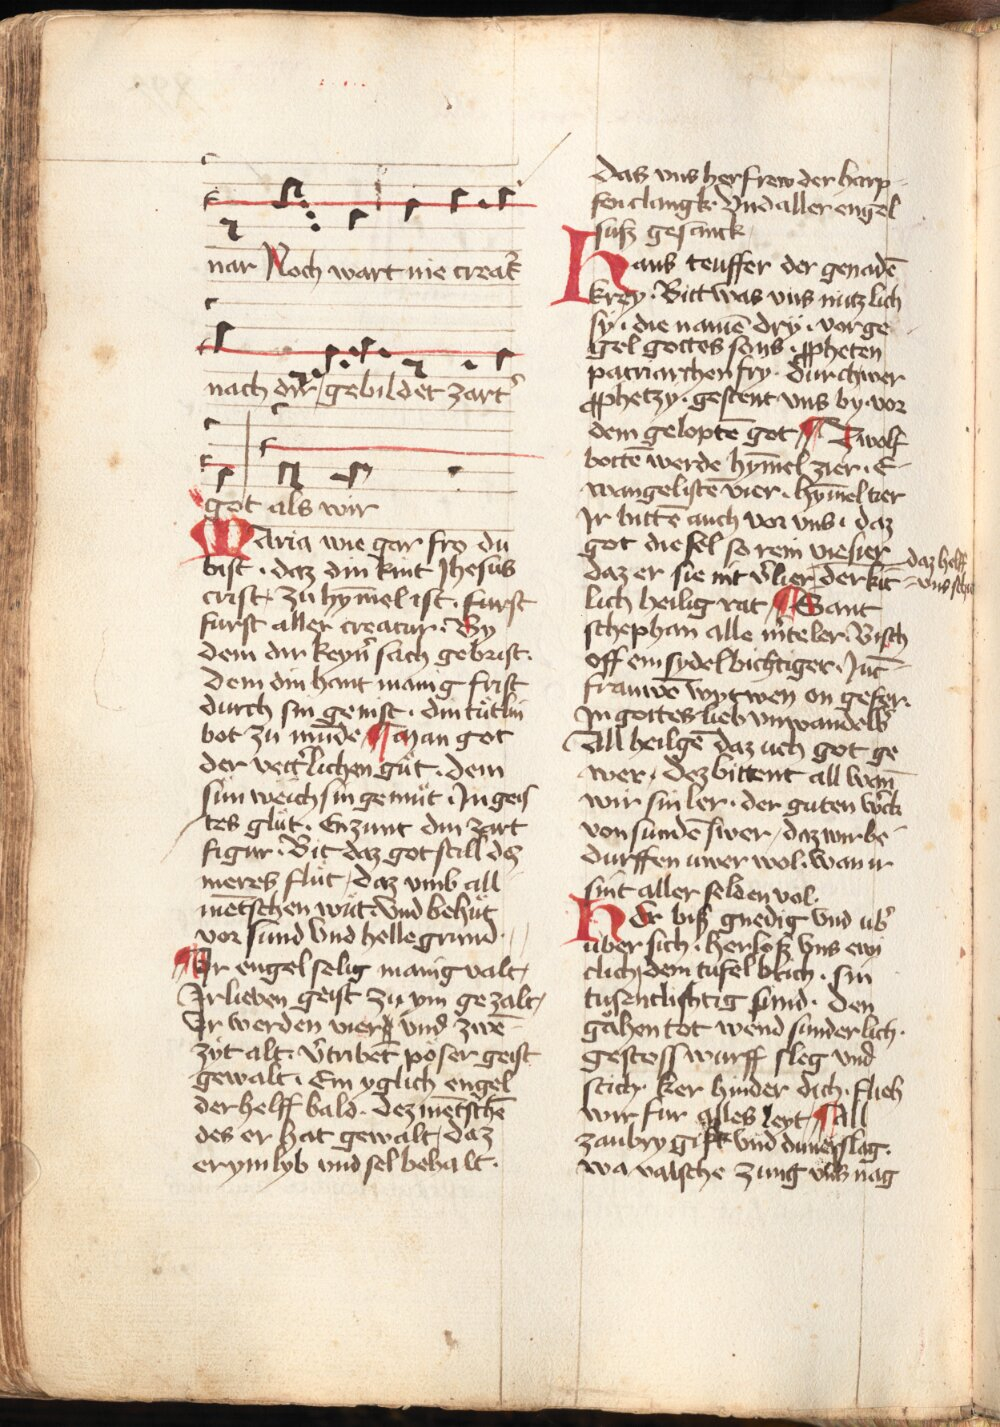 nar Noch wart nie creat᷑
nach dir gebildet zart᷑
got als wir
Maria wie gar fro du
bist · daz din kint Jhesus
crist · zu hym̄el ist · furst
furst aller creatur · By
dem dir keyn᷑ sach gebrist ·
Dem din hant manig frist
durch sin geinst · din tütlin
bot zu mūde ¶ Man got
der vett᷑lichen güt · dem
sun weich sin gemüt · In geis
tes glüt · Enzunt din zart
figur · Bit daz got still des
meres flüt / daz vmb all
mētschen wüt · Vnd behüt
vor sund Vnd helle grund ·
¶ Ir engel selig manig valt /
Ir lieben geist zu ym gezalt /
Ir werden vier vnd zwē
zyt alt · v᷑tribet pöser geist
gewalt · Ein yglich engel
der helff bald · dez mētschē
des er hat gewalt / daz
er ym lyb vnd sel behalt ·
das vns her frew der harp
fen clangk · Vnd aller engel
susz gesanck
Hans teuffer der genadē
krey · Bitt was vns nutzlich
sy · die namē dry · vorge
gel gottes sons · ꝓpheten
patriarchen fry · durch wer
ꝓphetzy · gestent vns by · vor
dem geloptē got ¶ Zwolf
bottē werde hym̄el zier · E
wangelistē vier · hym̄el tier
Ir bittē auch vor vns · daz
got die sel so rein vie sier
daz er sie nit v᷑lier / der kit
daz helff
vns sch
lich heilig rat ¶ Sant
schephan alle m̄teler · Bisch
off einsydel bichtiger · Juc̄
frauwē wytwen on gefer ·
In gottes lieb vnwandelb᷑
All heilgē daz uch got ge
wer / dez bittent all wan̄
wir sin ler · der guten w᷑ck
von sundē swer / daz wir be
durffen uwer wol · wan ir
sint aller selden vol ·
Her bisz gnedig vnd ub᷑
über sich · her losz vns ewi
clich / dem tufel btich · sin
tusentlistig sund · den
gähen tot wend sunderlich ·
gestoss wurff sleg vnd
stich · ker hinder dich · flieh
wir fur alles leyt ¶ All
zaubry gift vnd duner slag ·
wa valsche zung vns nag